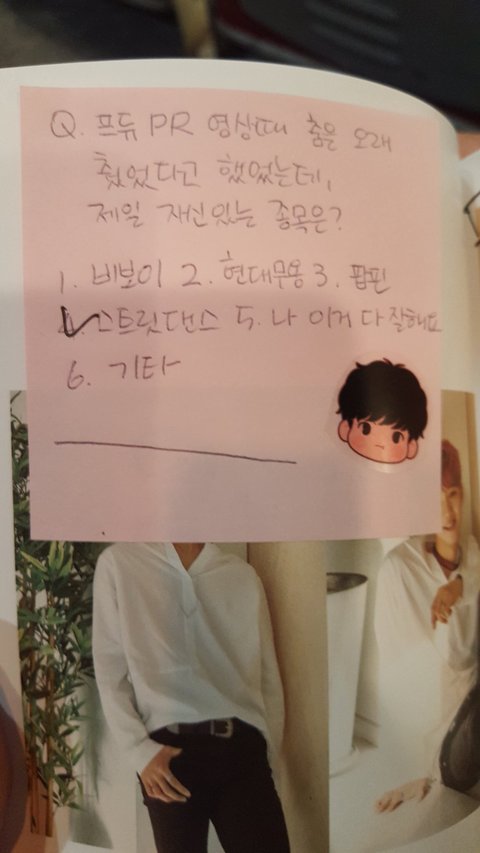 Q. 프듀 PR 영상때 춤은 오래
췄었다고 했었는데,
제일 자신있는 종목은?
1. 비보이 2. 현대무용 3. 팝핀
스트릿댄스 5. 나 이거 다 잘해요
6. 기타